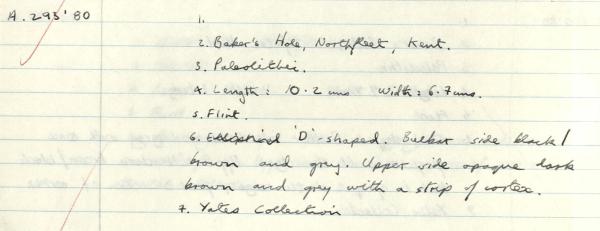 A. 293'80
1.
2. Baker's Hole, Northfleet, Kent.
3. Paleolithic.
4. Length: 10.2 cms Width: 6.7 cms.
5. Flint.
6. 'D'-shaped. Bulbar side black/
brown and grey. Upper side opaque dark
brown and grey with a strip of cortex.
7. Yates Collection